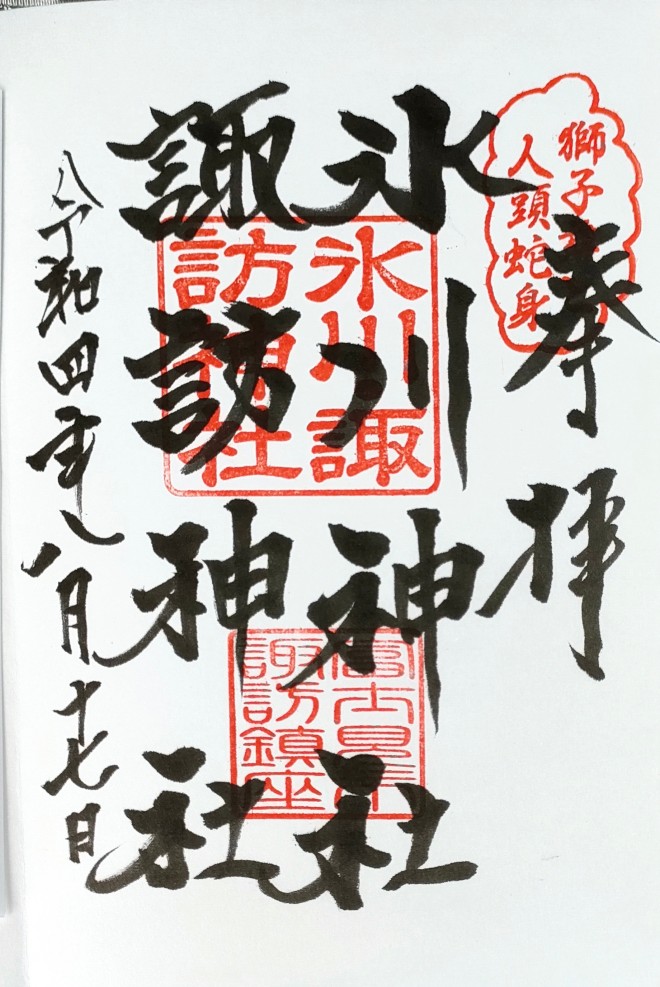 奉拝
獅子
人頭蛇身
氷川神社
諏訪神社
氷川諏
訪神社
富士見市
諏訪鎮座
令和四年八月十七日